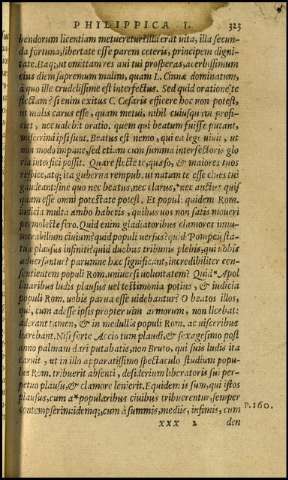 PHILIPPICA I. 323
bendorum licentiam metueretur: illa erat uita, illa secun-
da fortuna, libertate esse parem ceteris, principem digni-
tate. Itaq; ut omittam res aui tui prosperas, acerbissimum
eius diem supremum malim, quam L. Cinnæ dominatum,
à quo ille crudelissime est interfectus. Sed quid oratione te
flectam? si enim exitus C. Cæsaris efficere hoc non potest,
ut malis carus esse, quam metui, nihil cuiusquam profi-
ciet, nec ualebit oratio. quem qui beatum fuisse putant,
miserrimi ipsi sunt. Beatus est nemo, qui ea lege uiuit, ut
non modo impune, sed etiam cum summa interfectoris glo
ria interfici possit. Quare flecte te, quæso, & maiores tuos
respice, atq; ita guberna rempub. ut natum te esse ciues tui
gaudeant: sine quo nec beatus, nec clarus, *nec auctus quisq̃
quam esse omni potestate potest. Et populi quidem Rom.
iudicia multa ambo habetis, quibus uos non satis moueri
permoleste fero. Quid enim gladiatoribus clamores innu-
merabilium ciuium? quid populi uersus? quid Pompeij sta-
tuæ plausus infiniti? quid duobus tribunis plebis, qui uobis
aduersantur? parumne hæc significant, incredibiliter con-
sentientem populi Rom. uniuersi uoluntatem? Quid *Apol
linarium ludis plausus uel testimonia potius, & iudicia
populi Rom. uobis parua esse uidebantur? O beatos illos,
qui, cum adesse ipsis propter uim armorum, non licebat:
aderant tamen, & in medullis populi Rom. ac uisceribus
hærebant. Nisi forte Accio tum plaudi, & sexagesimo post
anno palmam dari putabatis, non Bruto, qui suis ludis ita
caruit, ut in illo apparatissimo spectaculo studium popu-
lus Rom. tribuerit absenti, desiderium liberatoris sui per-
petuo plausu, & clamore lenierit. Equidem is sum, qui istos
plausus, cum à* popularibus ciuibus tribuerentur, semper
contempserim: idemq; cum à summis, medijs, infimis, cum
P. 160.
XXX 2 den